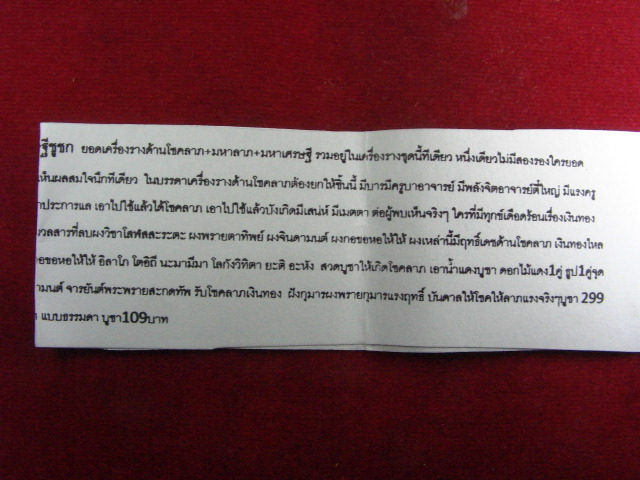 รฐีชูชก ยอดเครื่องรางด้านโชคลาภ+มหาลาภ+มหาเศรษฐี รวมอยู่ในเครื่องรางชุดนี้ทีเดียว หนึ่งเดียวไม่มีสองรองใครยอด
เห็นผลสมใจนึกทีเดียว ในบรรดาเครื่องรางด้านโชคลาภต้องยกให้ชิ้นนี้ มีบารมีครูบาอาจารย์ มีพลังจิตอาจารย์ตี๋ใหญ่ มีแรงครู
าประการแล เอาไปใช้แล้วได้โชคลาภ เอาไปใช้แล้วบังเกิดมีเสน่ห์ มีเมตตา ต่อผู้พบเห็นจริงๆ ใครที่มีทุกข์เดือดร้อนเรื่องเงินทอง
มวลสารที่ลบผงวิชาโสฬสสะระตะ ผงพรายตาทิพย์ ผงจินดามนต์ ผงกอขอหอให้ให้ ผงเหล่านี้มีฤทธิ์เดชด้านโชคลาภ เงินทองไหล
อขอหอให้ให้ อิลาโภ โตอิถี นะมามีมา โลกังวิทิตา ยะติ อะหัง สวดบูชาให้เกิดโชคลาภ เอาน้ำแดงบูชา ดอกไม้แดง1คู่ ธูป1คู่จุด
ามนต์ จารยันต์พระพรายสะกดทัพ รับโชคลาภเงินทอง ฝังกุมารผงพรายกุมารแรงฤทธิ์ บันดาลให้โชคให้ลาภแรงจริงๆบูชา 299
า แบบธรรมดา บูชา109บาท